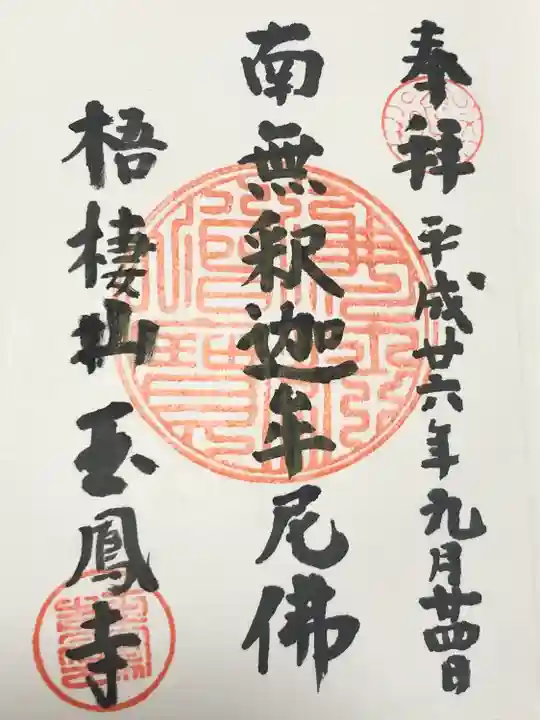 奉拜 平成廿六年九月廿四日
南無釈迦牟尼佛
梧棲山 玉鳳寺